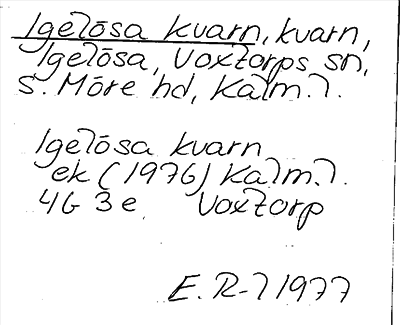 Igelösa kvarn, kvarn,
Igelösa, Voxtorps sn,
S. Möre hd, Kalm.l.
Igelösa kvarn
ek (1976) Kalm.l.
4G 3e Voxtorp
E. R-l 1977